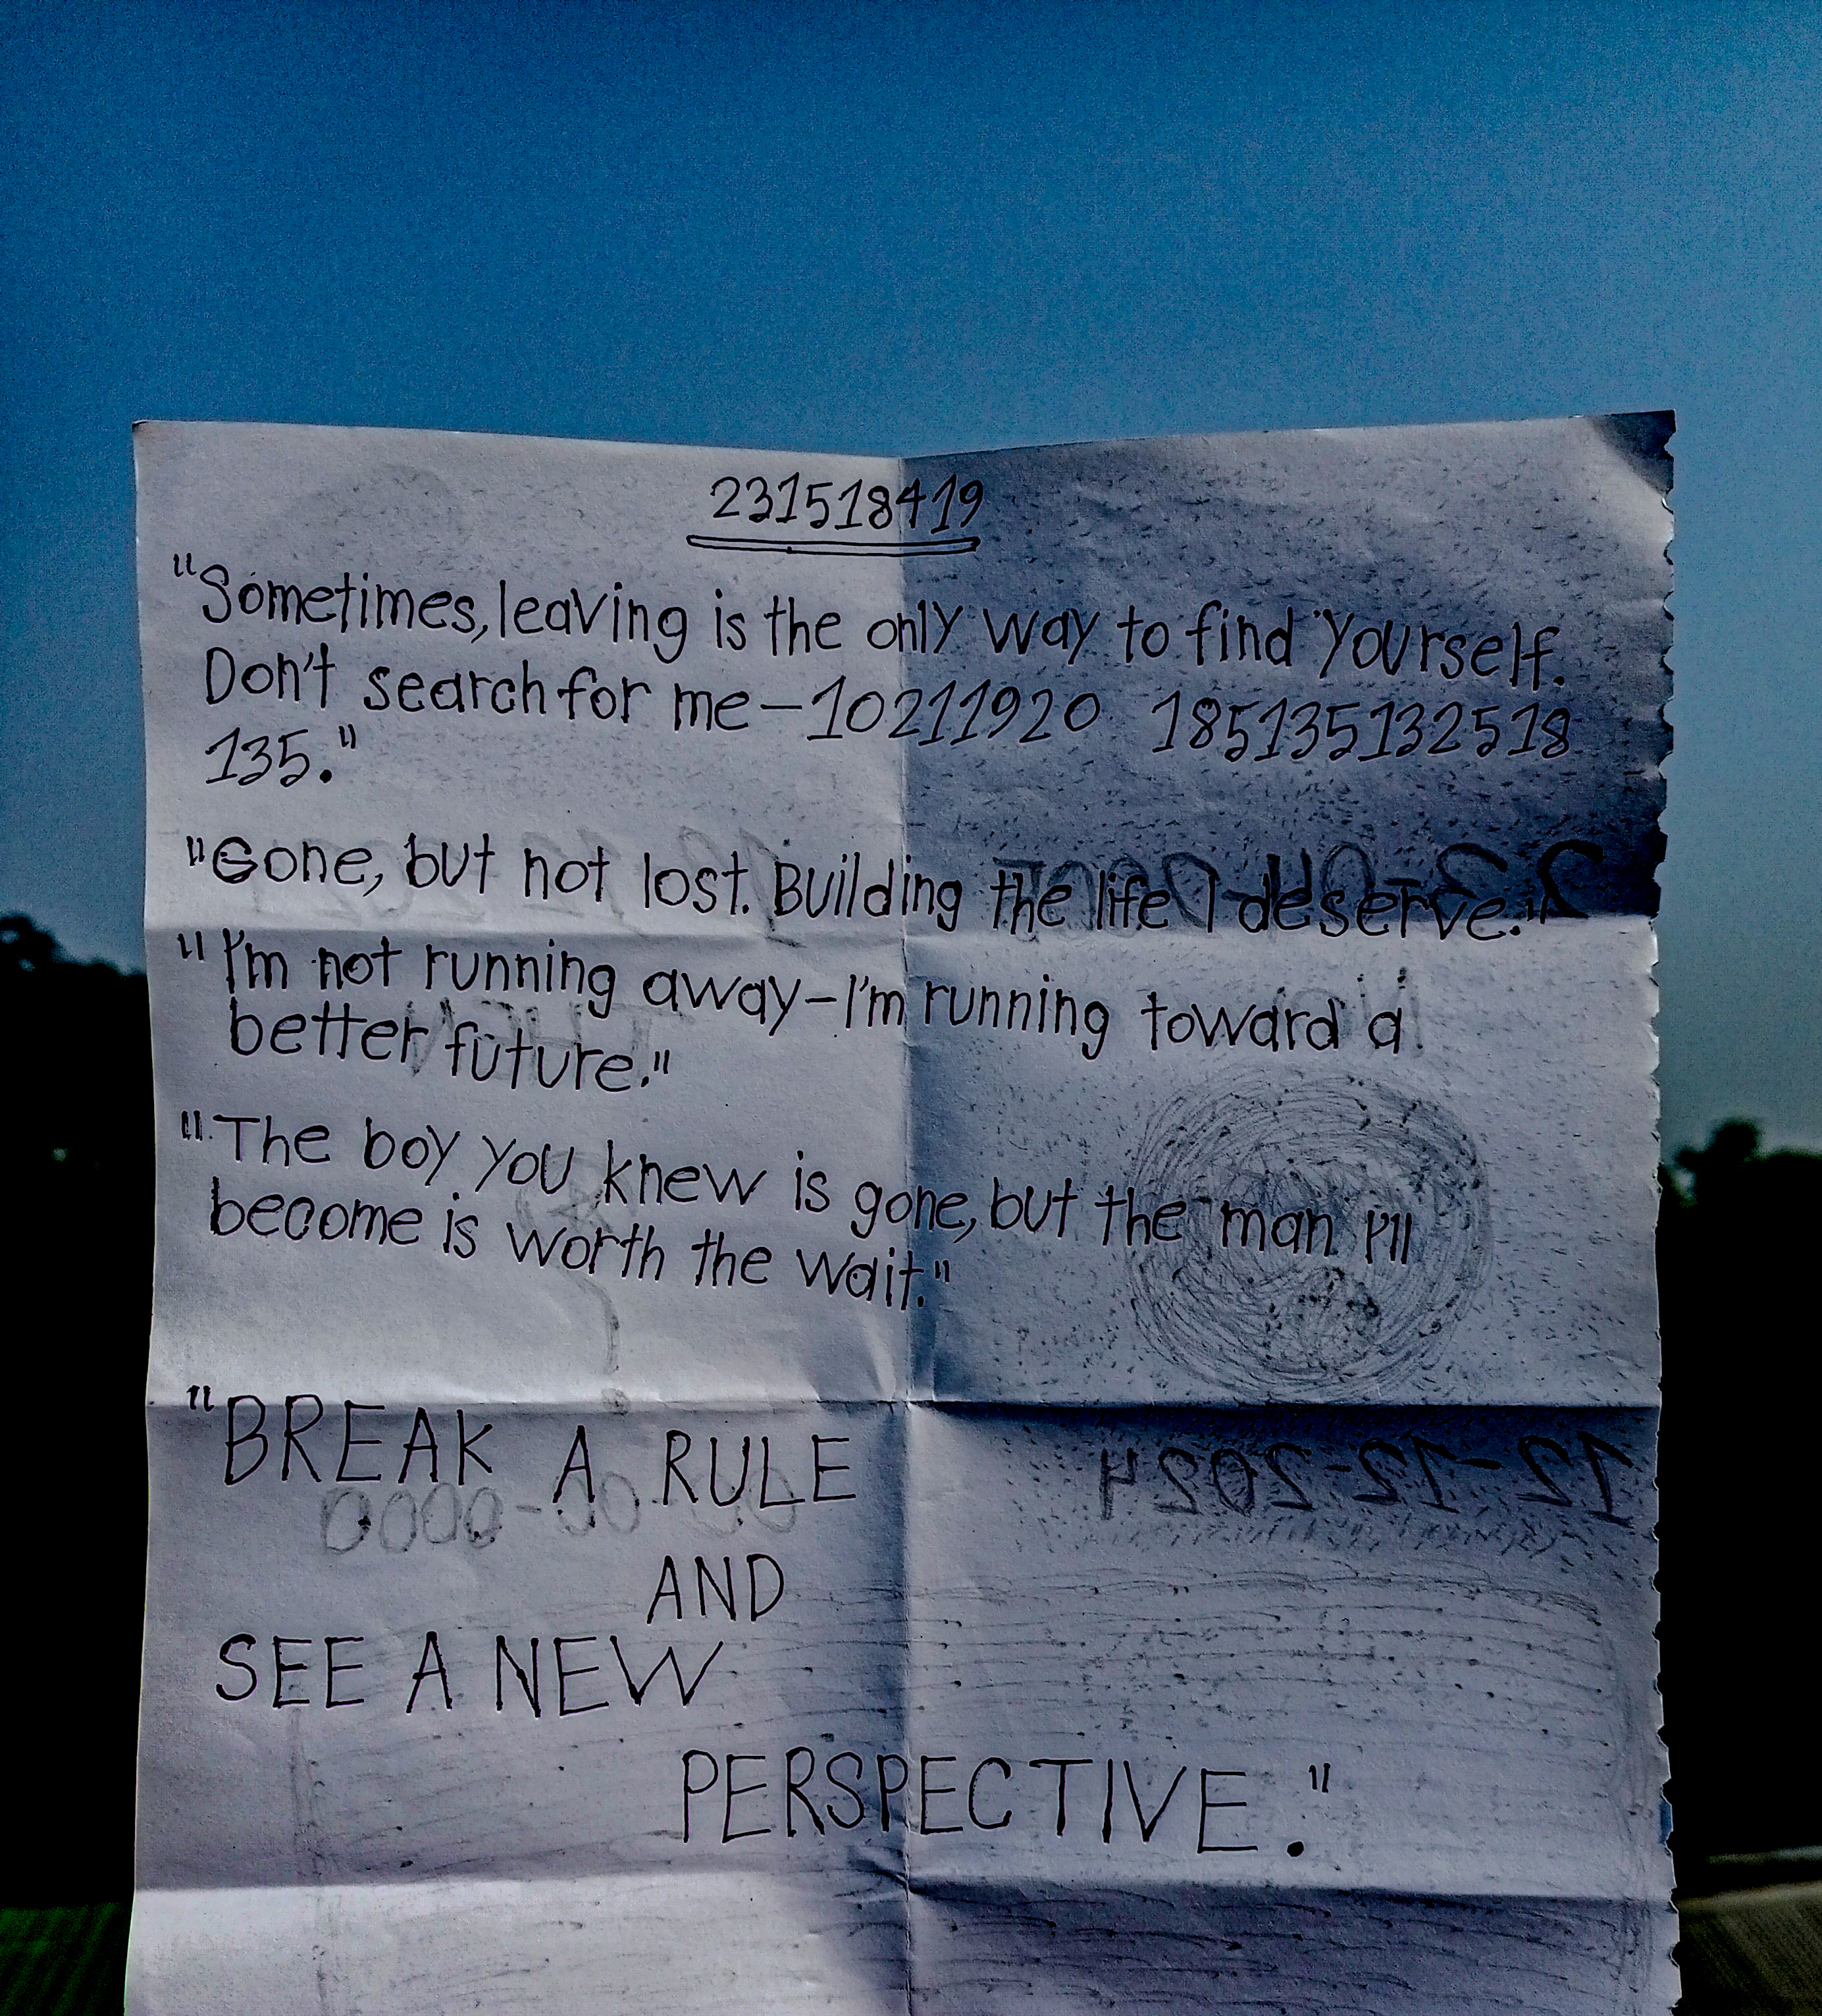 231518419
"Sometimes, leaving is the only way to find yourself.
Don't search for me—10211920 185135132518
135."
"Gone, but not lost. Building the life I deserve."
"I'm not running away—I'm running toward a
better future."
"The boy you knew is gone, but the man I'll
become is worth the wait."
"BREAK A RULE
12-12-2024
AND
SEE A NEW
PERSPECTIVE."